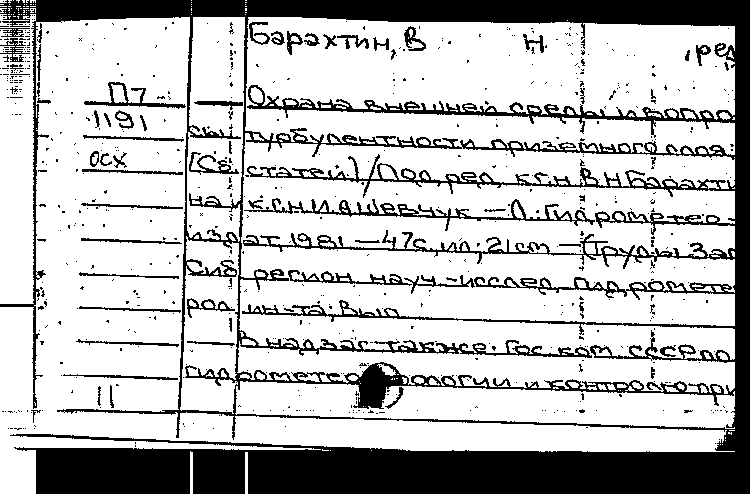 Барахтин, В Н , ред
П7 Охрана внешней среды и вопро
1191 сы турбулентности приземного слоя:
осх [Сб. статей] / Под ред. к.г.н В.Н Барахти
на и к.г.н И.В Шевчук. — Л.: Гидрометео-
издат, 1981 — 47с, ил; 21 cm — (Труды Зап
Сиб регион науч-исслед. гидромете
рол. ин-та; Вып
В надзаг также: Гос ком. СССР по
гидрометео рологии и контролю при
11